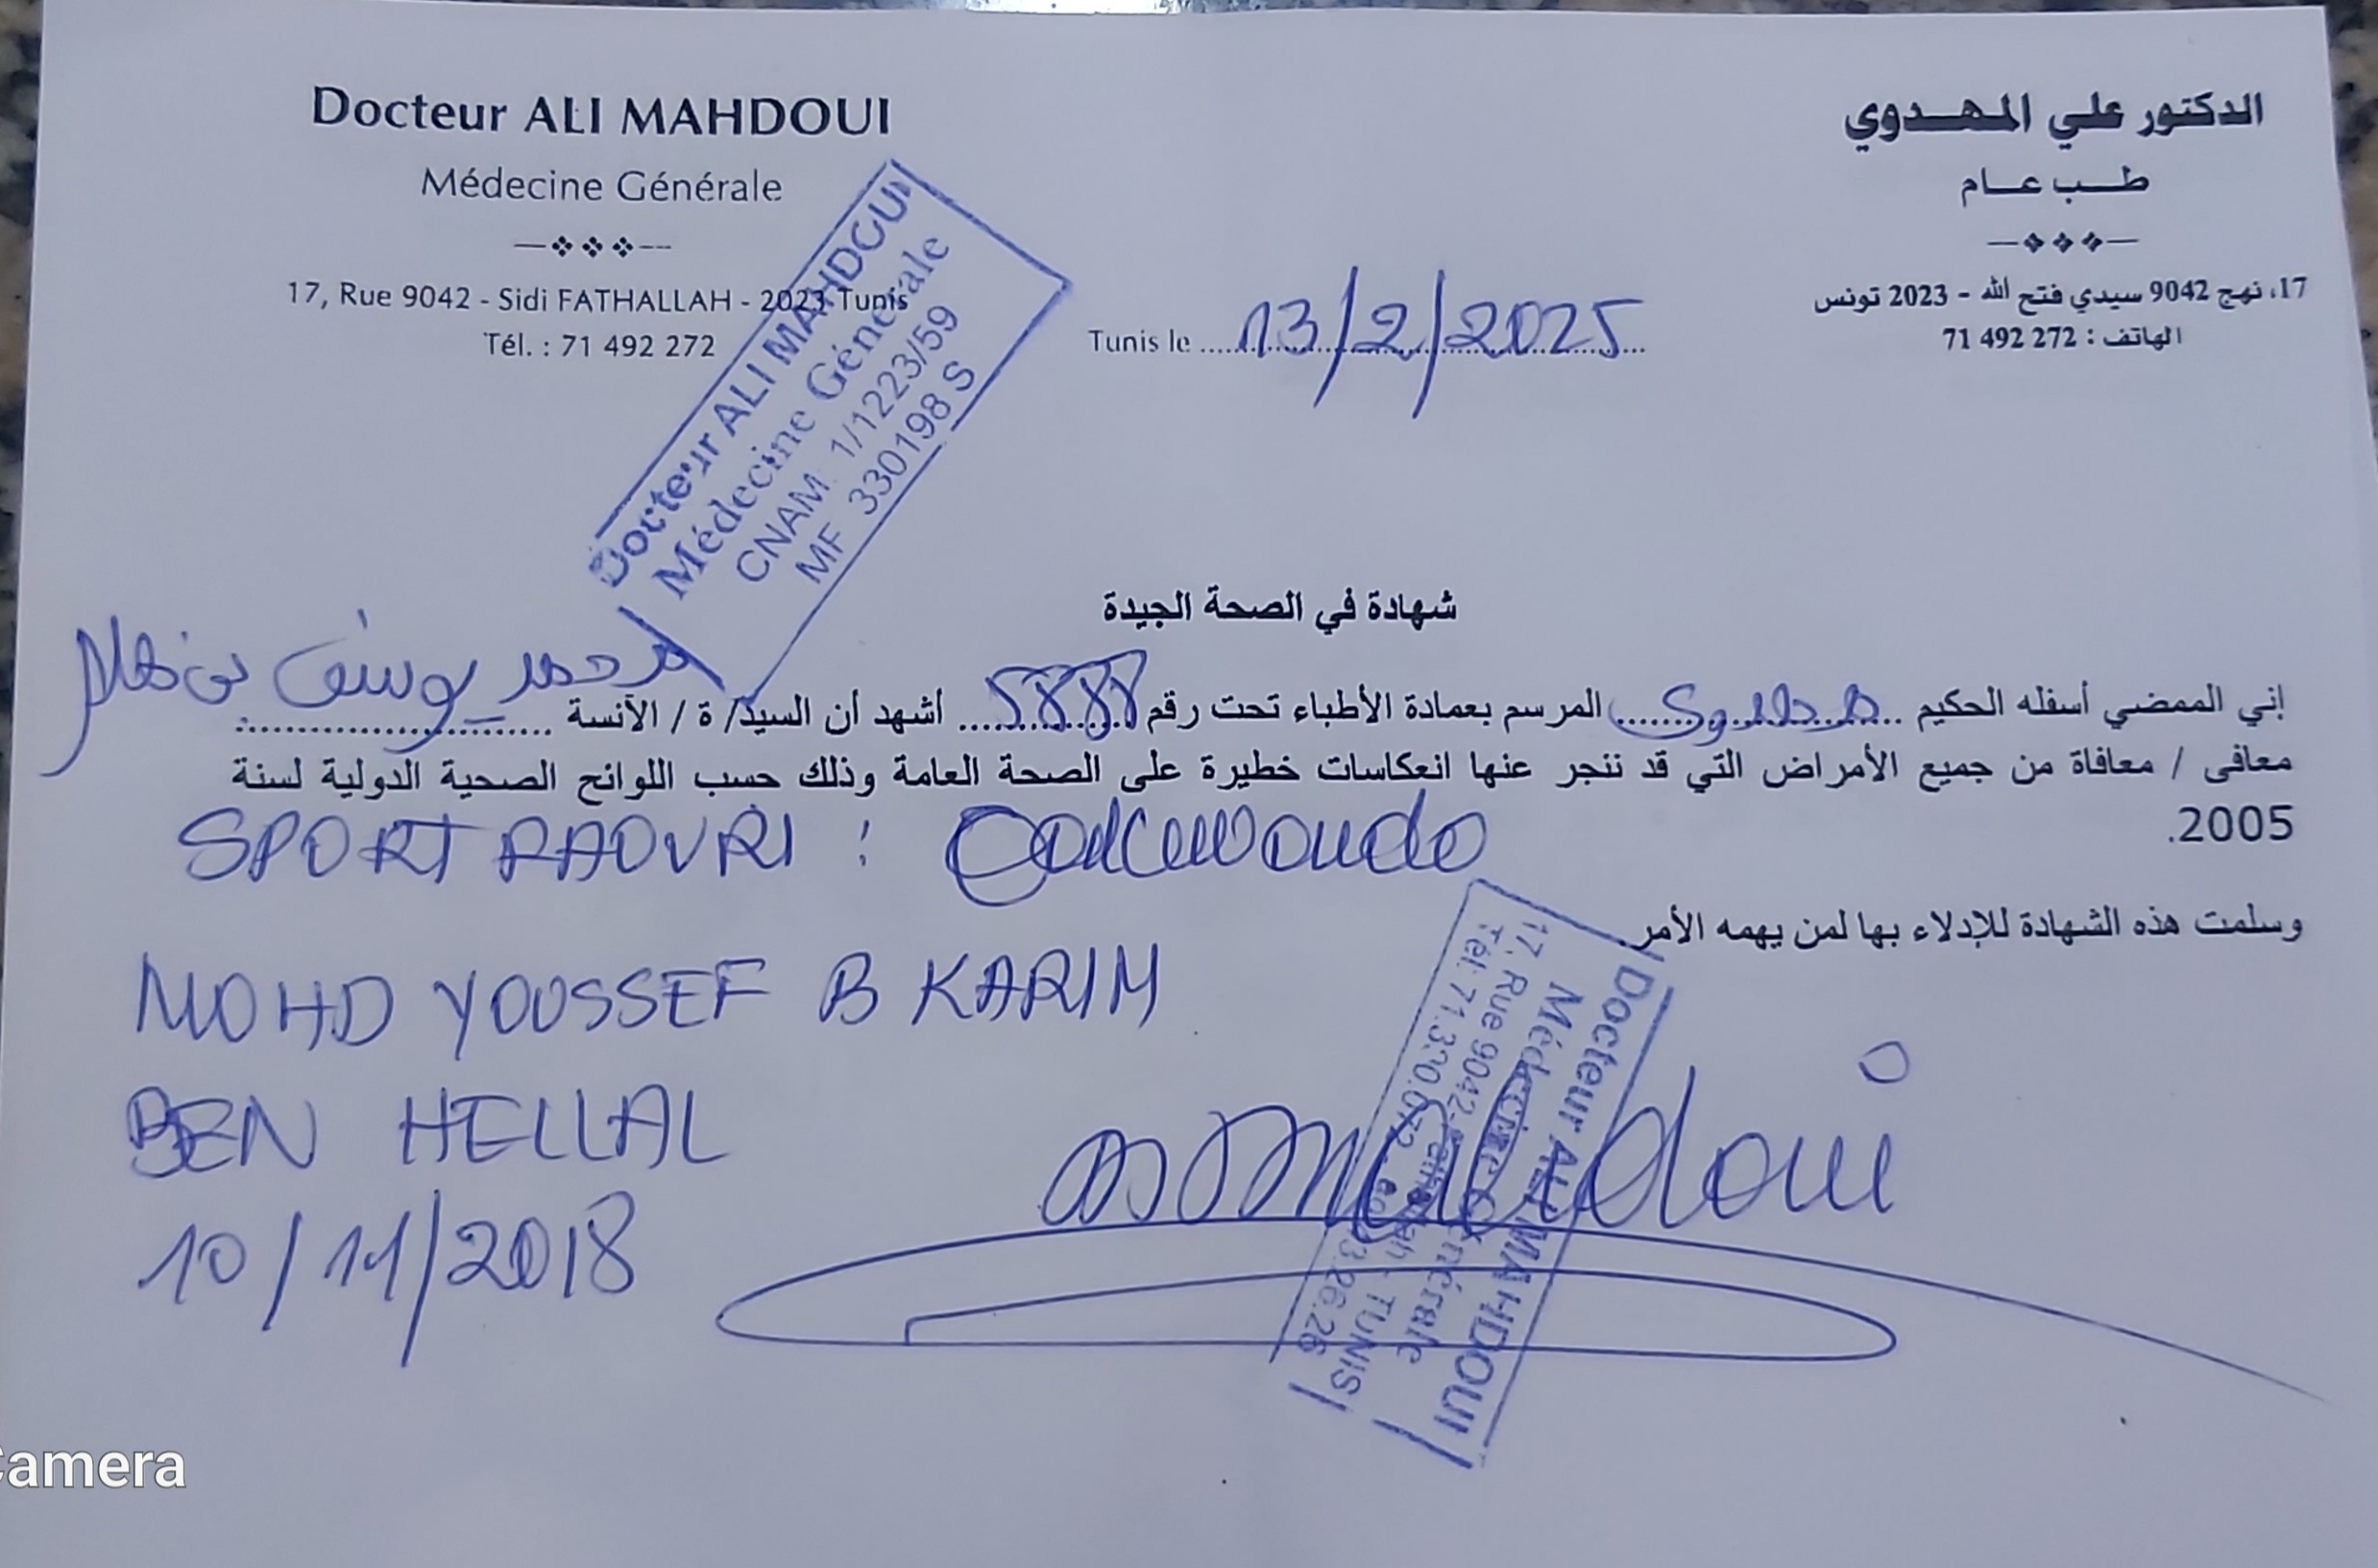 Docteur ALI MAHDOUI
Médecine Générale
17, Rue 9042 - Sidi FATHALLAH - 2023 Tunis
Tél. : 71 492 272
الدكتور علي المهدوي
طب عام
17، نهج 9042 سيدي فتح الله - 2023 تونس
الهاتف : 272 492 71
Tunis le 13/2/2025
Docteur ALI MAHDOUI
Médecine Générale
CNAM 1/1223/59
MF 330198 S
شهادة في الصحة الجيدة
إني الممضي أسفله الحكيم مهدوي المرسم بعمادة الأطباء تحت رقم 5888 أشهد أن السيد/ ة / الآنسة محمد يوسف بن هلال
معافى / معافاة من جميع الأمراض التي قد تنجر عنها انعكاسات خطيرة على الصحة العامة وذلك حسب اللوائح الصحية الدولية لسنة
2005.
SPORT :
وسلمت هذه الشهادة للإدلاء بها لمن يهمه الأمر
MOHD YOUSSEF B KARIM
BEN HELLAL
10/11/2018
Docteur ALI MAHDOUI
Médecine Générale
17, Rue 9042 - TUNIS
Tél: 71.390.072
Mahdoui
Camera